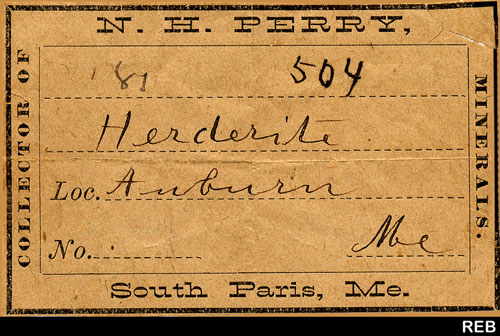 N. H. PERRY,
COLLECTOR OF
MINERALS.
'81 504
Herderite
Loc. Auburn
No. Me
South Paris, Me.
REB